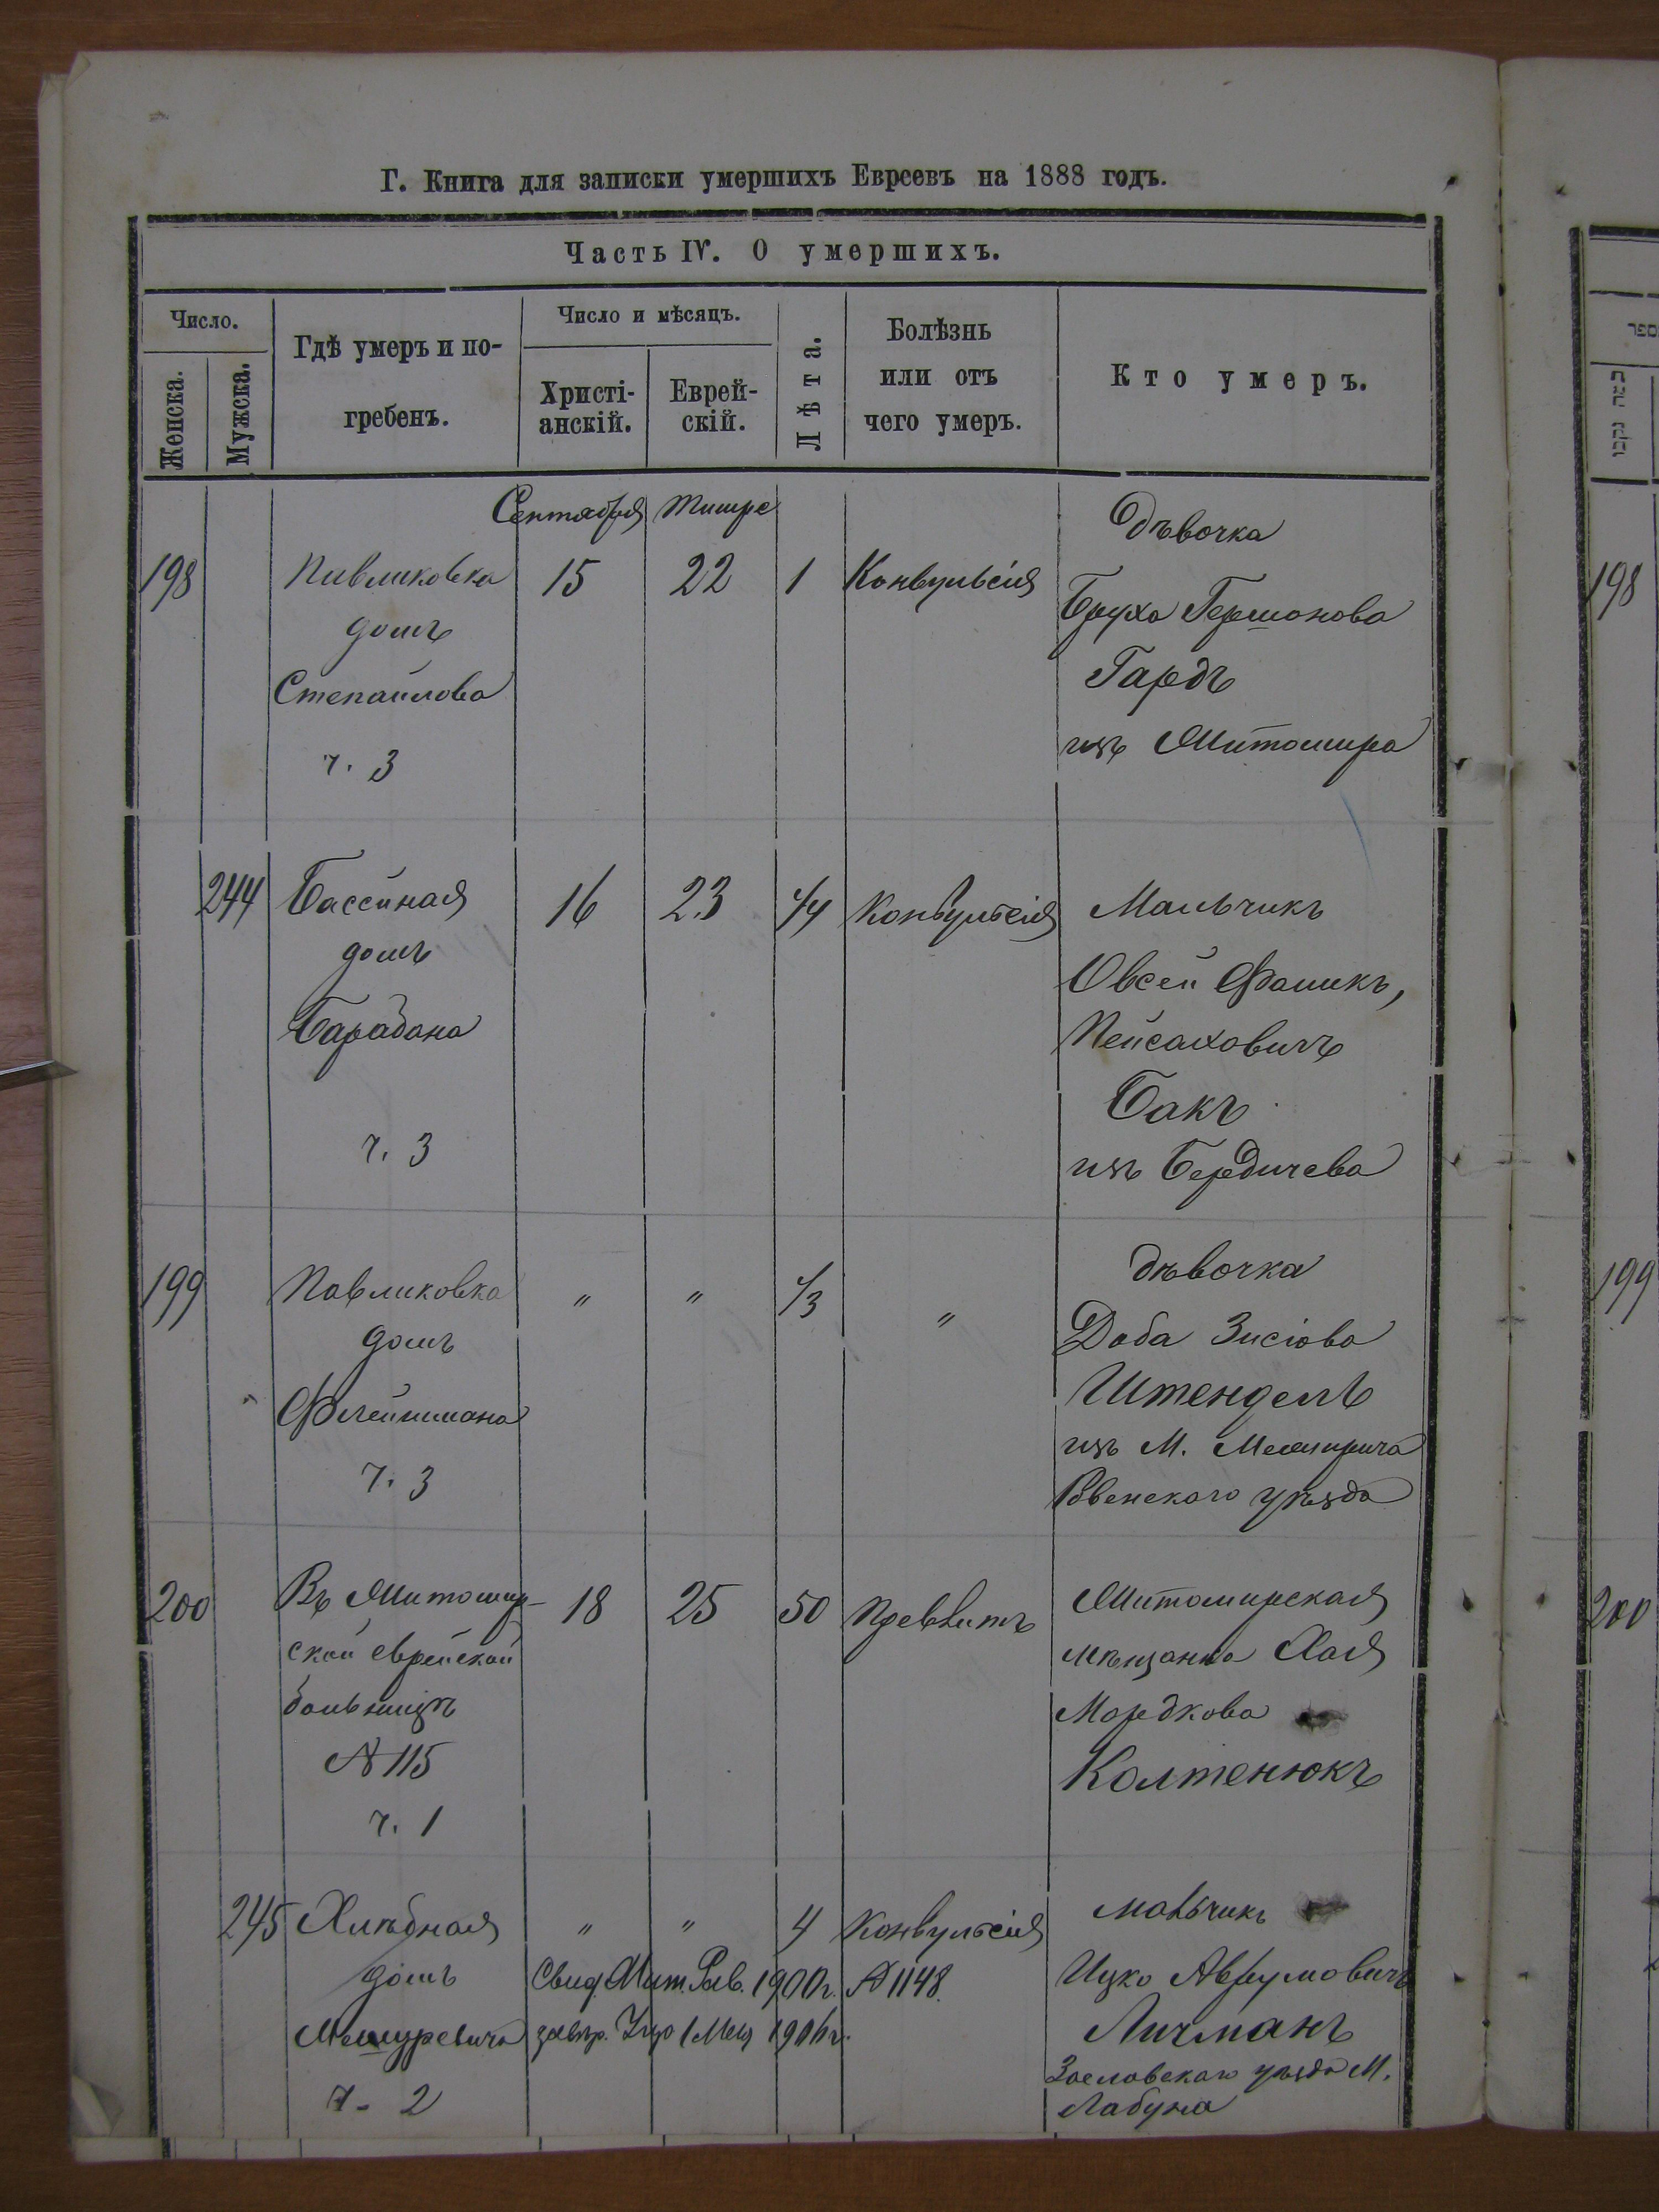 Г. Книга для записки умершихъ Евреевъ на 1888 годъ.
Часть IV. О умершихъ.
Число.
Женска.
Мужска.
Гдѣ умеръ и по-
гребенъ.
Число и мѣсяцъ.
Христі-
анскій.
Еврей-
скій.
Лѣта.
Болѣзнь
или отъ
чего умеръ.
Кто умеръ.
Сентября Тишре
198
Павликовка
домъ
Степанлова
ч. 3
15
22
1
Конвульсія
Дѣвочка
Бруха Гершонова
Гардъ
изъ Житомира
244
Бассейная
домъ
Барабана
ч. 3
16
23
1/4
Конвульсія
Мальчикъ
Овсей Фашикъ,
Пейсаховичъ
Бакъ
изъ Бердичева
199
Павликовка
домъ
Флейшмана
ч. 3
"
"
1/3
"
дѣвочка
Доба Зисіова
Штендель
изъ М. Межирича
Ровенскаго уѣзда
200
Въ Житомир-
ской еврейской
больницѣ
№ 115
ч. 1
18
25
50
Плевритъ
Житомирская
мѣщанка Хая
Мордкова
Колтенюкъ
245
Хлѣбная
домъ
Мешуревича
ч. 2
"
"
4
Конвульсія
Свид. Жит. Рав. 1900 г. № 1148.
мальчикъ
Ицко Аврумовичъ
Личманъ
Заславскаго уѣзда М.
Лабуна
198
199
200